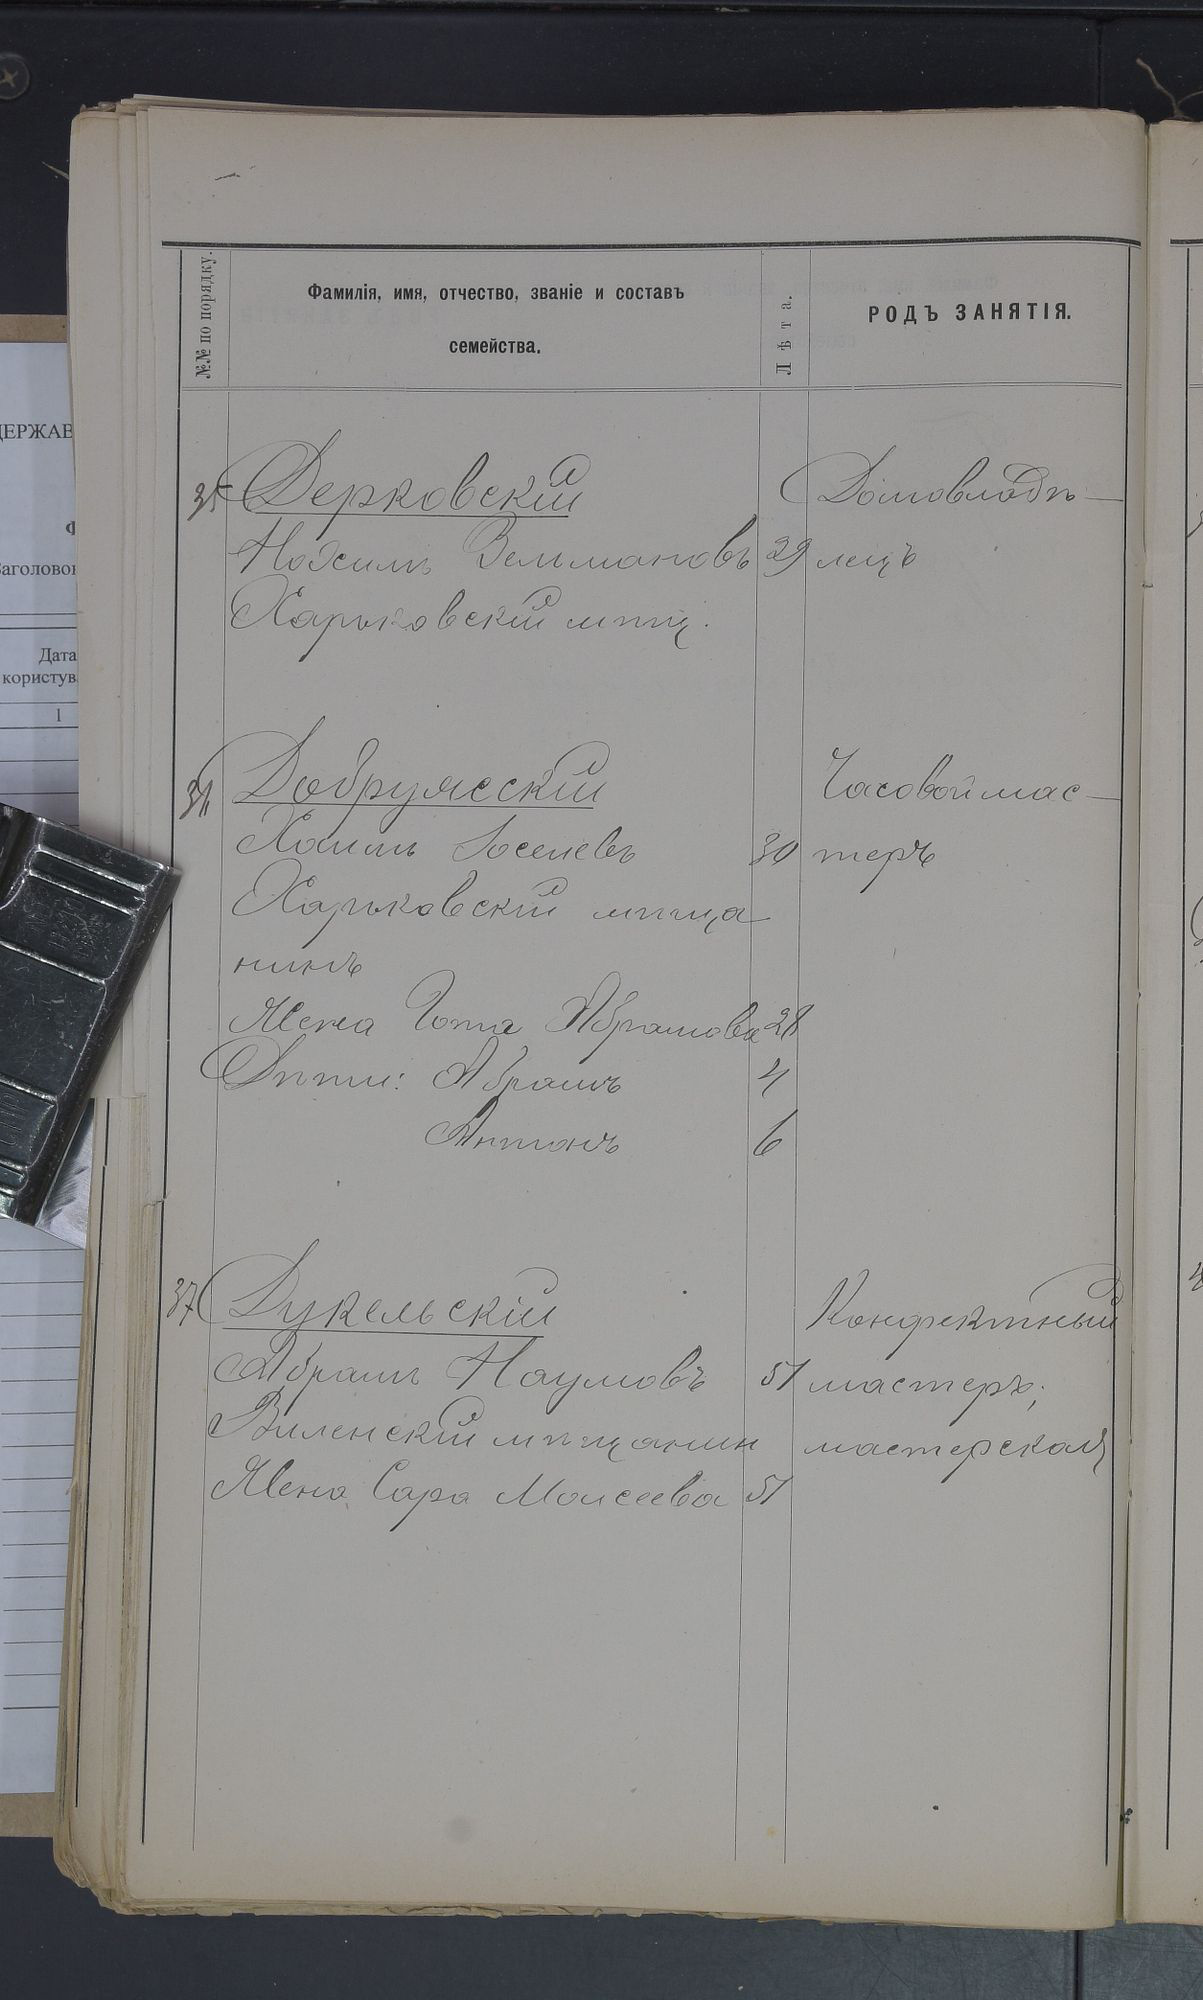 №№ по порядку.
Фамилія, имя, отчество, званіе и составъ
семейства.
Лѣта.
РОДЪ ЗАНЯТІЯ.
35 Дерковскій Домовладѣ-
Нохимъ Зельмановъ 29 лецъ
Харьковскій мѣщ.
36 Добружскій Часовой мас-
Хаимъ Іоселевъ 30 теръ
Харьковскій мѣща
нинъ
Жена Абрамова 28
Дѣти: Абрамъ 4
Антонъ 6
37 Дукельскій Конфектный
Абрамъ Наумовъ 51 мастеръ;
Виленскій мѣщанин мастерская
Жена Сара Моисеева 51
ДЕРЖАВ
Заголовок
Дата
користув
1